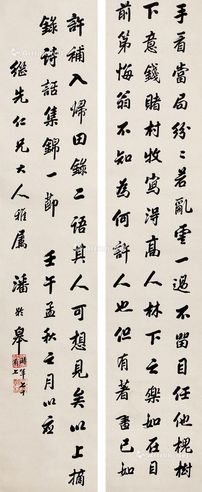 手看當局紛紛若亂雲一過不留目任他槐樹
下意錢賭村牧寫得高人林下之樂如在目
前第悔翁不知為何許人也但有著書已如
許補入歸田錄二語其人可想見矣以上摘
錄詩話集錦一節 壬午孟秋之月以應
繼先仁兄大人雅屬 潘齡皋